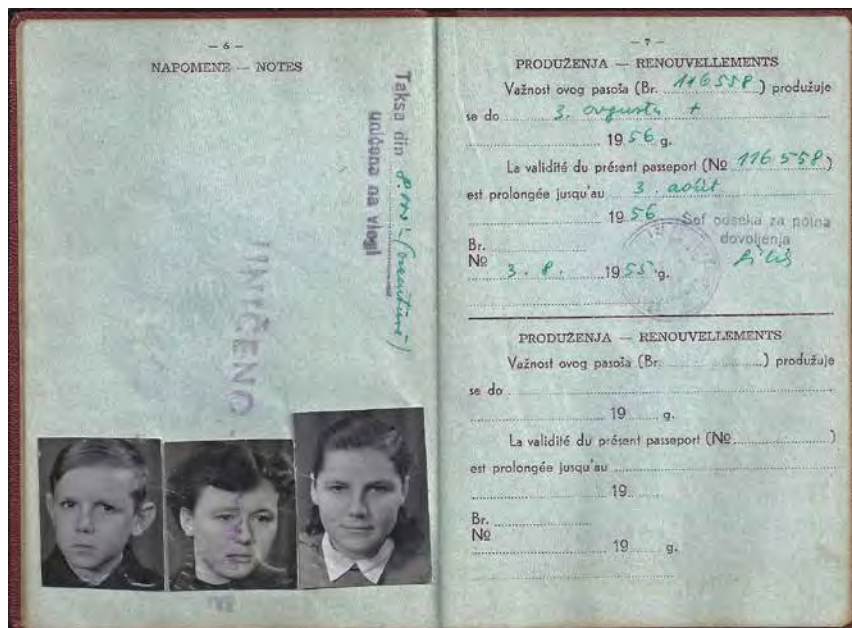 – 6 –
NAPOMENE — NOTES
Taksa din
uničena na vlogi
UNIČENO
– 7 –
PRODUŽENJA — RENOUVELLEMENTS
Važnost ovog pasoša (Br. 116558) produžuje
se do 3. avgusta
1956 g.
La validité du présent passeport (No 116558)
est prolongée jusqu'au 3. août
1956
Šef odseka za potna
dovoljenja
Br.
No
3. 8. 1955 g.
PRODUŽENJA — RENOUVELLEMENTS
Važnost ovog pasoša (Br. ) produžuje
se do
19 g.
La validité du présent passeport (No )
est prolongée jusqu'au
19
Br.
No
19 g.